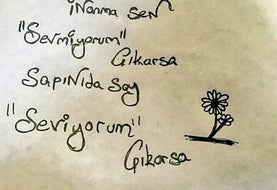 iNanma SeN
"Sevmiyorum"
Çıkarsa
SapıNıda Say
"Seviyorum"
Çıkarsa